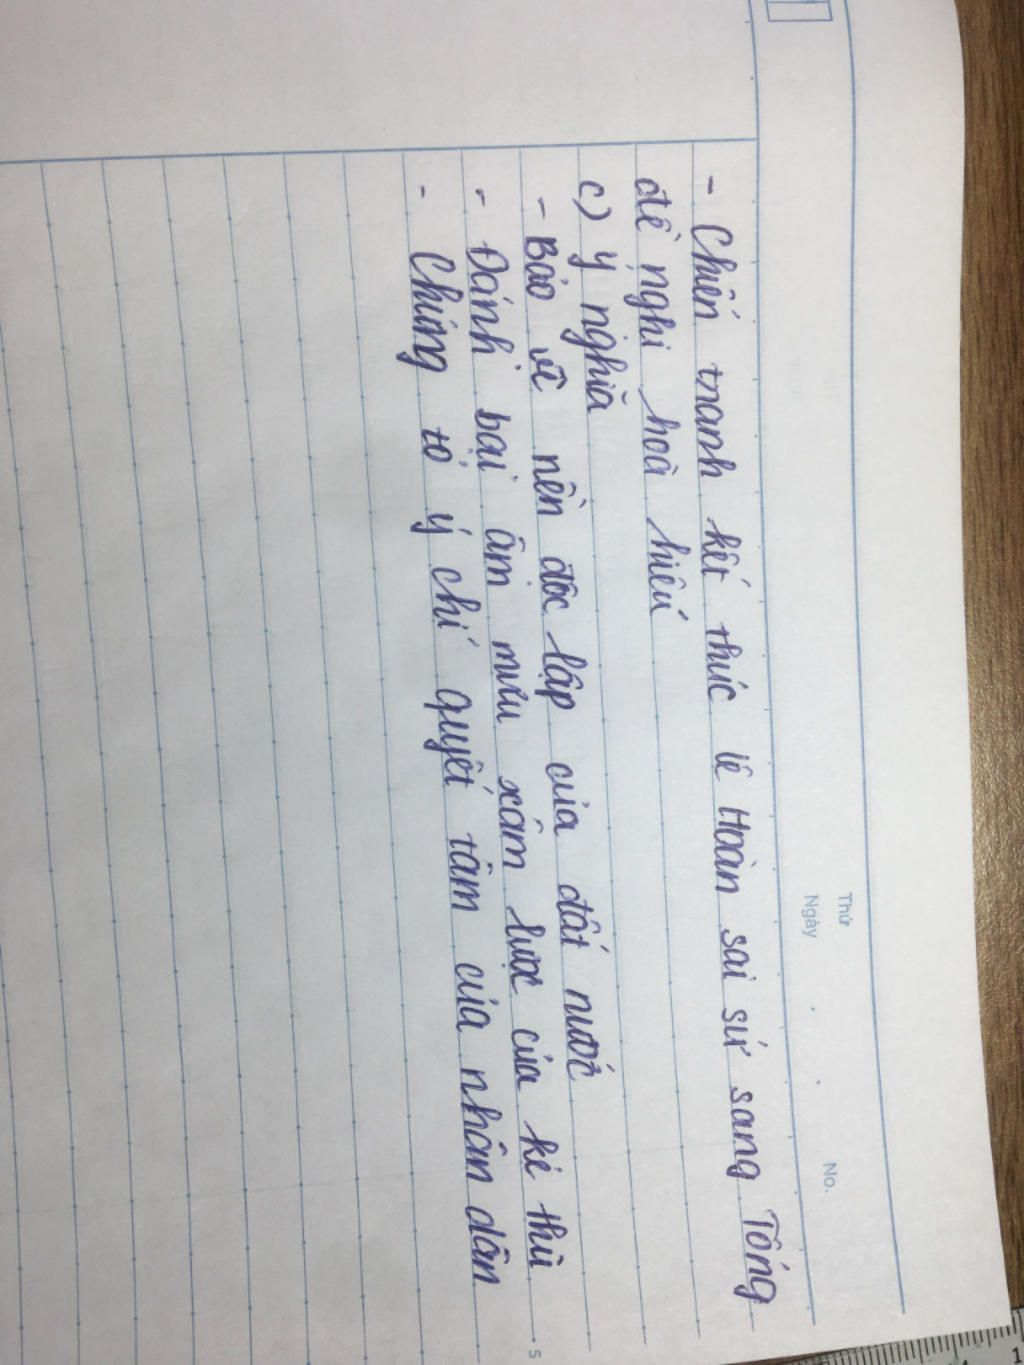 Thứ
Ngày . . No.
- Chiến tranh kết thúc lê Hoàn sai sứ sang Tống
đề nghị hoà hiếu
c) ý nghĩa
- Bảo vệ nền độc lập của đất nước
- Đánh bại âm mưu xâm lược của kẻ thù
- Chứng tỏ ý chí quyết tâm của nhân dân
5
1